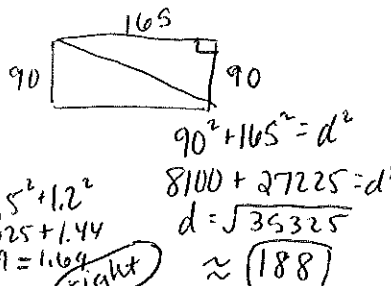 165
90 90
90² + 165² = d²
8100 + 27225 = d²
d = √35325
≈ 188
5² + 1.2²
25 + 1.44
= 1.69
right